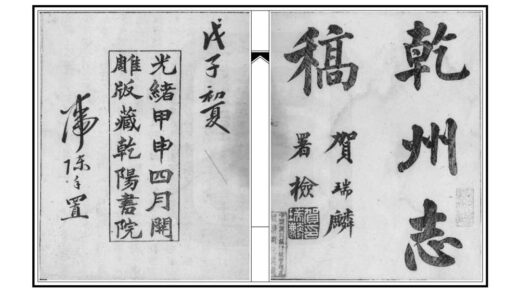 乾州志
稿
賀瑞麟
署檢
戊子初夏
光緒甲申四月開
雕版藏乾陽書院
置